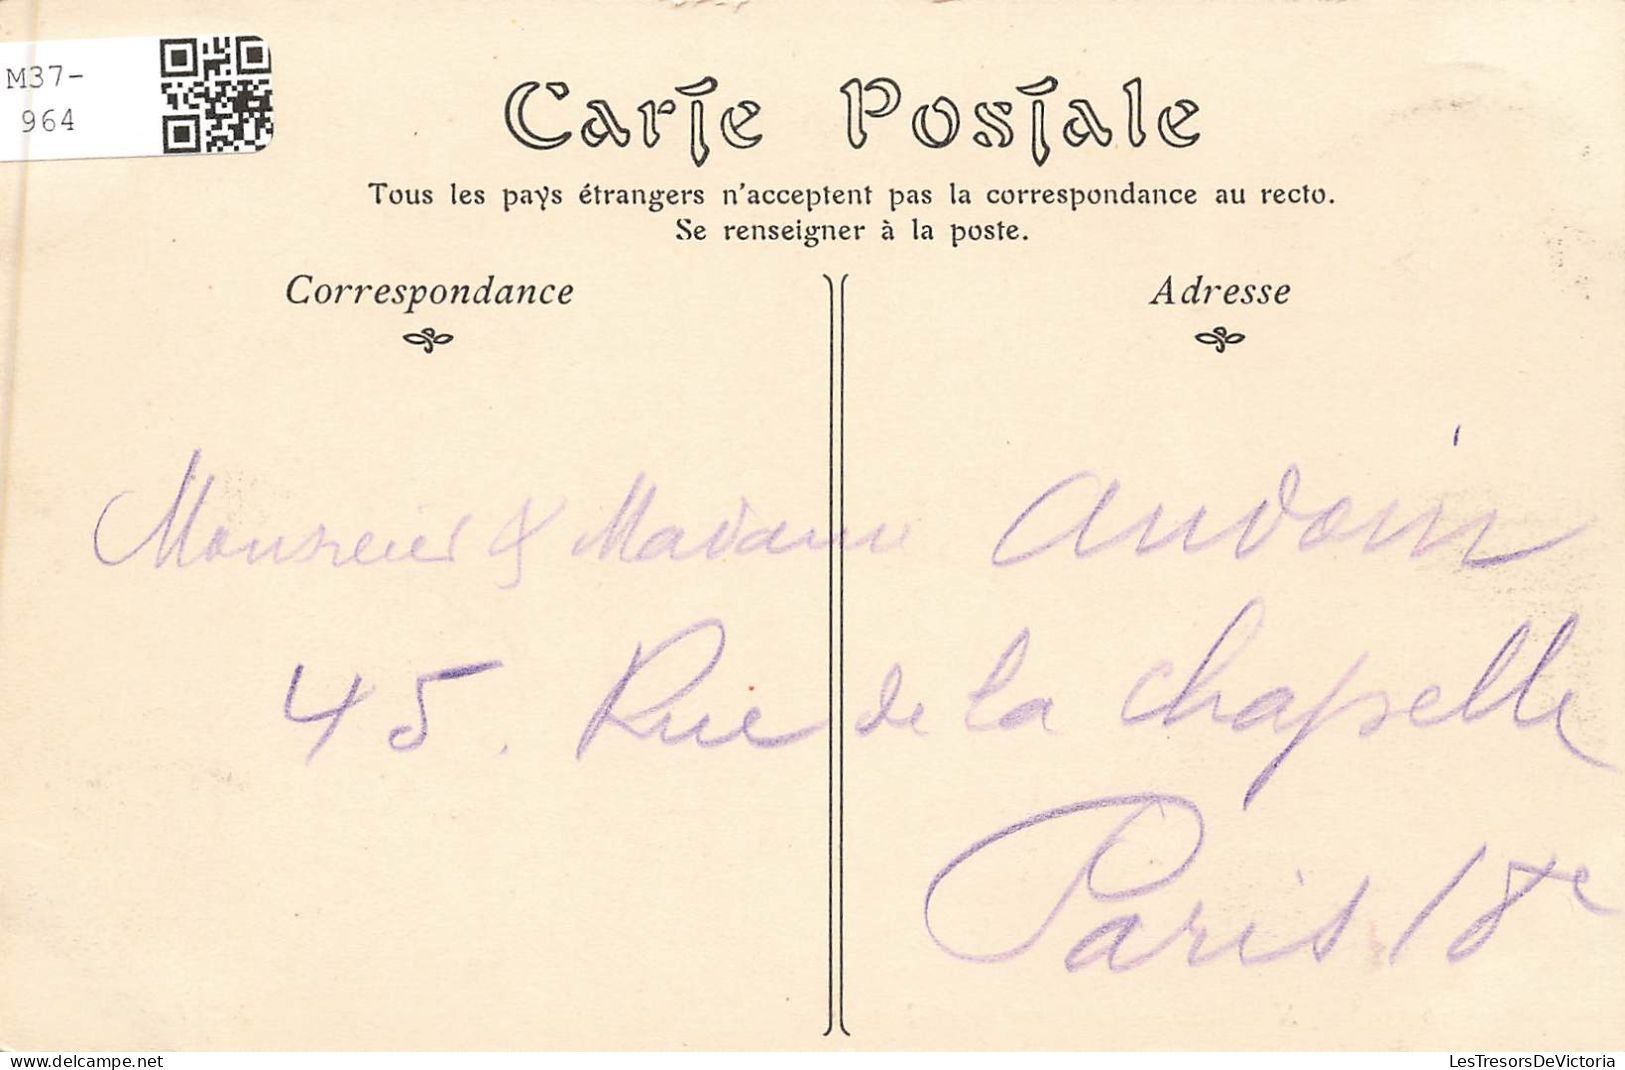 M37-
964
Carte Postale
Tous les pays étrangers n'acceptent pas la correspondance au recto.
Se renseigner à la poste.
Correspondance
Adresse
Monsieur & Madame Audoin
45. Rue de la Chapelle
Paris 18e
www.delcampe.net
LesTresorsDeVictoria